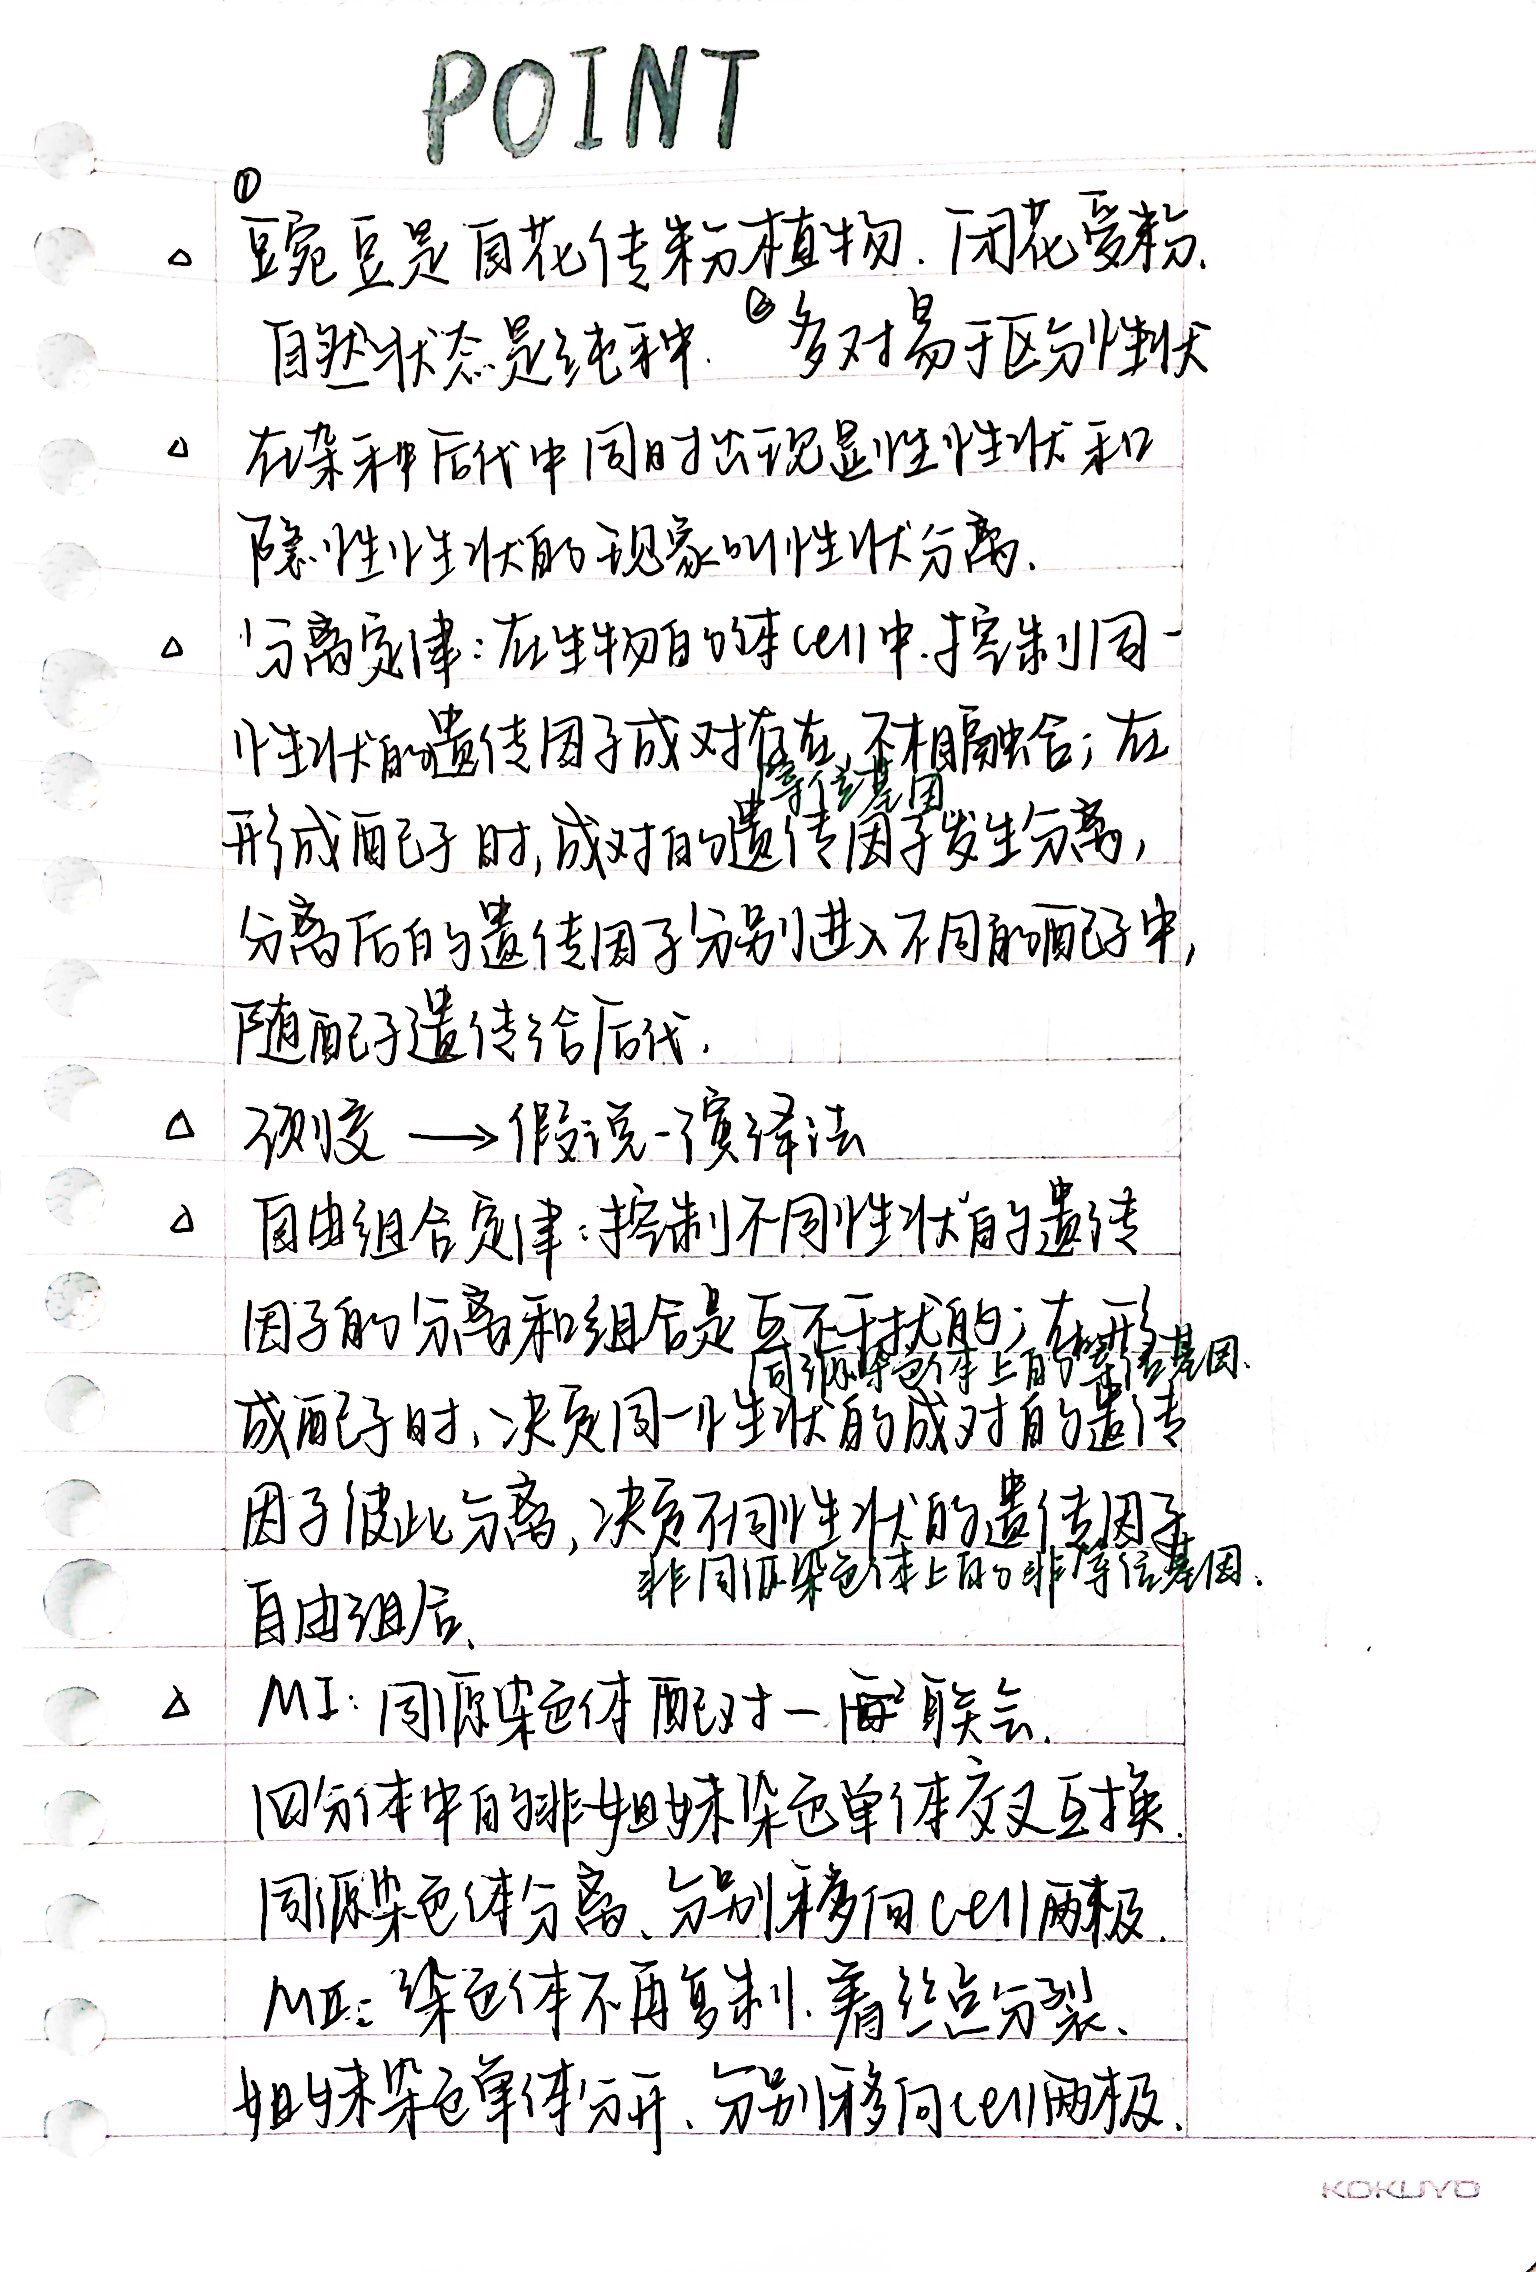 POINT
①
△ 豌豆是自花传粉植物.闭花受粉.
自然状态是纯种. ②多对易于区分性状
△ 在杂种后代中同时出现显性性状和
隐性性状的现象叫性状分离.
△ 分离定律:在生物的体cell中.控制同一
性状的遗传因子成对存在,不相融合;在
等位基因
形成配子时,成对的遗传因子发生分离,
分离后的遗传因子分别进入不同的配子中,
随配子遗传给后代.
△ 测交 → 假说-演绎法
△ 自由组合定律:控制不同性状的遗传
因子的分离和组合是互不干扰的;在形
同源染色体上的等位基因.
成配子时、决定同一性状的成对的遗传
因子彼此分离,决定不同性状的遗传因子
非同源染色体上的非等位基因.
自由组合、
△ MI:同源染色体配对一 联会.
四分体中的非姐妹染色单体交叉互换.
同源染色体分离、分别移向cell两极.
MII:染色体不再复制.着丝点分裂、
姐妹染色单体分开、分别移向cell两极.
KOKUYO